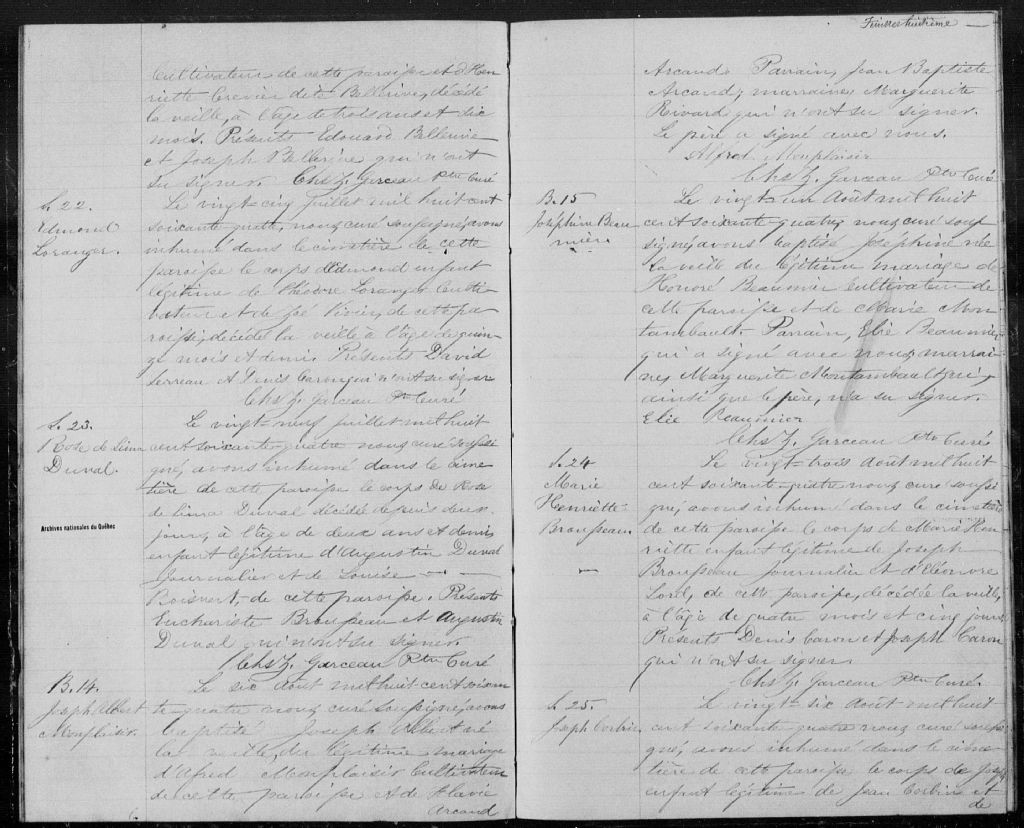 Cultivateur de cette paroisse et d'Hen
riette Crevier dite Bellerive, décédé
la veille, à l'âge de trois ans et six
mois. Présents Edouard Bellerive
et Joseph Bellerive qui n'ont
su signer. Chs Z. Garceau Ptre Curé
S. 22.
Edmond
Loranger.
Le vingt-cinq Juillet mil huit cent
soixante quatre, nous curé soussigné, avons
inhumé dans le cimetière de cette
paroisse le corps d'Edmond enfant
légitime de Théodore Loranger Culti-
vateur et de Zoé Vivier, de cette pa
roisse, décédé la veille à l'âge de quin-
ze mois et demi. Présents David
Serreau et Denis Caron qui n'ont su signer
Chs Z. Garceau Ptre Curé
S. 23.
Rose de Lima
Duval.
Le vingt-neuf juillet mil huit
cent soixante-quatre nous curé soussi
gné, avons inhumé dans le cime
tière de cette paroisse le corps de Rose
de Lima Duval décédée depuis deux
jours, à l'âge de deux ans et demi,
enfant légitime d'Augustin Duval
Journalier et de Louise
Boisvert, de cette paroisse. Présents
Euchariste Brousseau et Augustin
Duval qui n'ont su signer.
Chs Z. Garceau Ptre Curé
Archives nationales du Québec
B. 14.
Joseph Albert
Monplaisir.
Le six Août mil huit cent soixan
te-quatre nous curé soussigné, avons
baptisé Joseph Albert né
la veille, du légitime mariage
d'Alfred Monplaisir Cultivateur
de cette paroisse et de Flavie
Arcand
Feuillet huitième
Arcand. Parrain, Jean Baptiste
Arcand; marraine, Marguerite
Rivard qui n'ont su signer.
Le père a signé avec nous.
Alfred Monplaisir
Chs Z. Garceau Ptre Curé
B. 15
Joséphine Beau
mier
Le vingt-un Août mil huit
cent soixante quatre, nous curé sous
signé, avons baptisé Joséphine née
la veille du légitime mariage de
Honoré Beaumier Cultivateur de
cette paroisse et de Marie Mon
tambault. Parrain, Elie Beaumier,
qui a signé avec nous; marrai
ne, Marguerite Montambault qui,
ainsi que le père, n'a su signer.
Elie Beaumier
Chs Z. Garceau Ptre Curé
S. 24
Marie
Henriette
Brousseau
Le vingt-trois Août mil huit
cent soixante-quatre nous curé soussi
gné, avons inhumé dans le cimetière
de cette paroisse le corps de Marie Hen
riette enfant légitime de Joseph
Brousseau journalier et d'Eléonore
Lord, de cette paroisse, décédée la veille,
à l'âge de quatre mois et cinq jours.
Présents Denis Caron et Joseph Caron
qui n'ont su signer.
Chs Z. Garceau Ptre Curé.
S. 25.
Joseph Corbin
Le vingt-six Août mil huit
cent soixante quatre nous curé soussi
gné, avons inhumé dans le cime
tière de cette paroisse le corps de Joseph
enfant légitime de Jean Corbin et
de